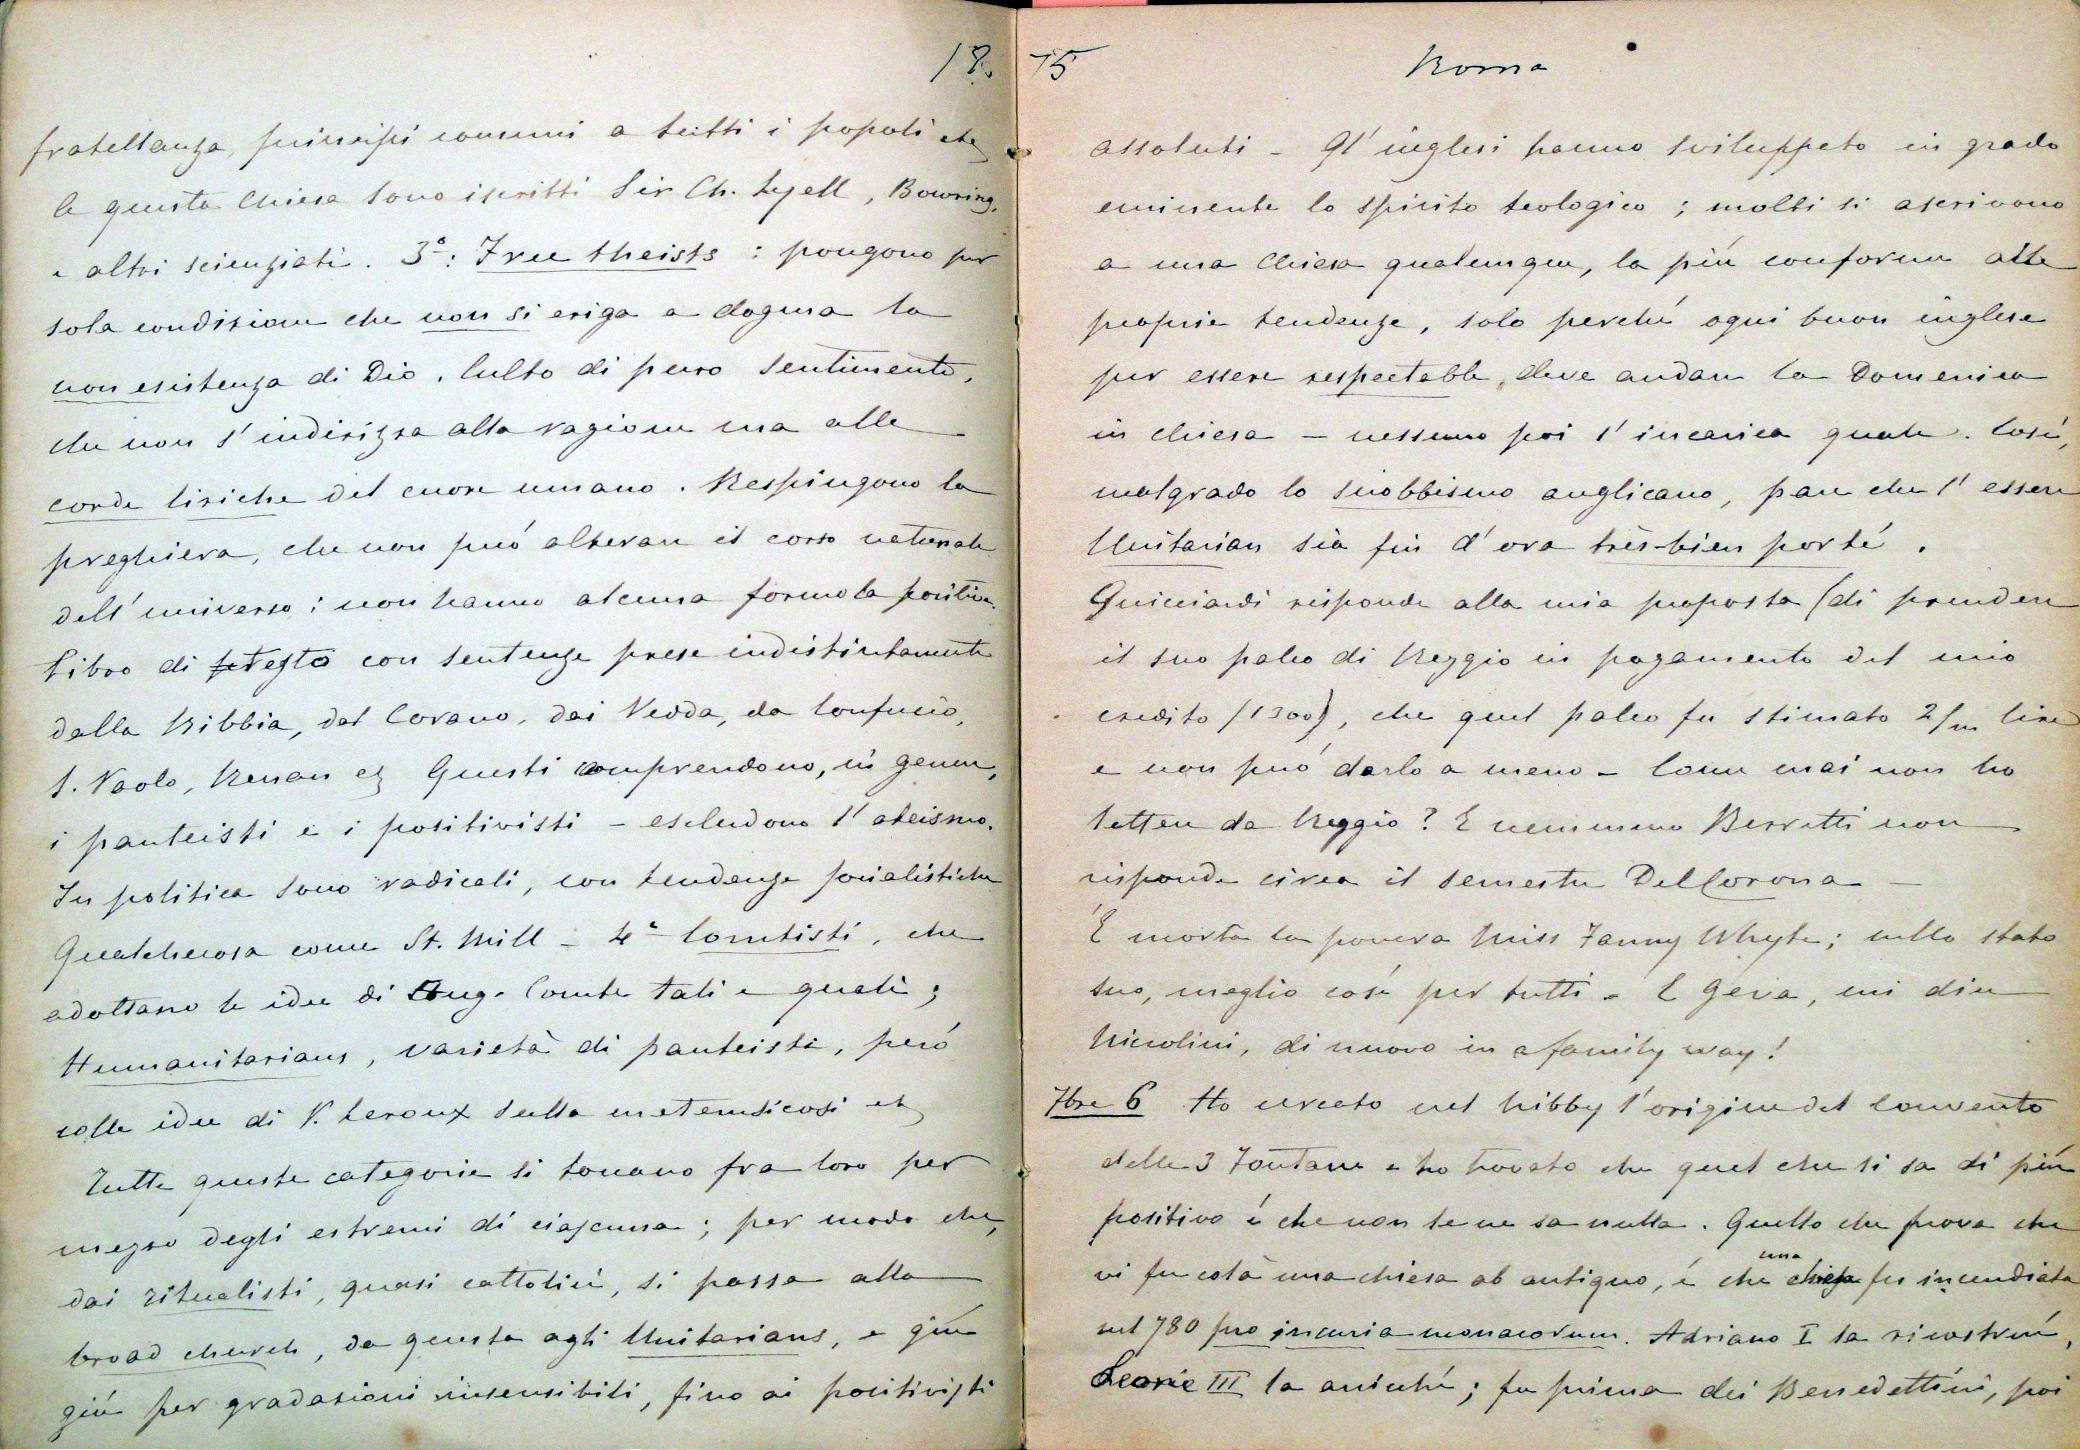 18.
fratellanza, principi comuni a tutti i popoli etc
A questa Chiesa sono iscritti Sir Ch. Lyell, Bowring,
e altri scienziati. 3°: Free theists: pongono per
sola condizione che non si eriga a dogma la
non esistenza di Dio. Culto di puro sentimento,
che non s'indirizza alla ragione ma alle
corde liriche del cuore umano. Respingono la
preghiera, che non può alterare il corso naturale
dell'universo: non hanno alcuna formola positiva.
Libro di testo con sentenze prese indistintamente
dalla Bibbia, dal Corano, dai Vedda, da Confucio,
S. Paolo, Renan etc Questi comprendono, in genere,
i panteisti e i positivisti - escludono l'ateismo.
In politica sono radicali, con tendenze socialistiche
Qualchecosa come St. Mill - 4° Comtisti, che
adottano le idee di Aug. Comte tali e quali;
Humanitarians, varietà di panteisti, però
colle idee di P. Leroux sulla metemsicosi etc
Tutte queste categorie si toccano fra loro per
mezzo degli estremi di ciascuna; per modo che,
dai ritualisti, quasi cattolici, si passa alla
broad church, da questa agli Unitarians, e giù
giù per gradazioni insensibili, fino ai positivisti
75
Roma
assoluti - Gl'inglesi hanno sviluppato in grado
eminente lo spirito teologico; molti si ascrivono
a una Chiesa qualunque, la più conforme alle
proprie tendenze, solo perché ogni buon inglese
per essere respectable, deve andare la Domenica
in chiesa - nessuno poi s'incarica quale. Così,
malgrado lo snobbismo anglicano, pare che l'essere
Unitarian sia fin d'ora très-bien porté.
Guicciardi risponde alla mia proposta (di prendere
il suo palco di Reggio in pagamento del mio
credito (1300), che quel palco fu stimato 2/m lire
e non può darlo a meno - Come mai non ho
lettere da Reggio? E nemmeno Berretti non
risponde circa il semestre DelCorona -
È morta la povera Miss Fanny Whyte; nello stato
suo, meglio così per tutti. E Geva, mi dice
Niccolini, di nuovo in a family way!
7bre 6 Ho cercato nel Nibby l'origine del Convento
delle 3 Fontane e ho trovato che quel che si sa di più
positivo é che non se ne sa nulla. Quello che prova che
vi fu colà una chiesa ab antiquo, é che una fu incendiata
nel 780 pro incuria monacorum. Adriano I la ricostruì,
Leone III la arricchì; fu prima dei Benedettini, poi